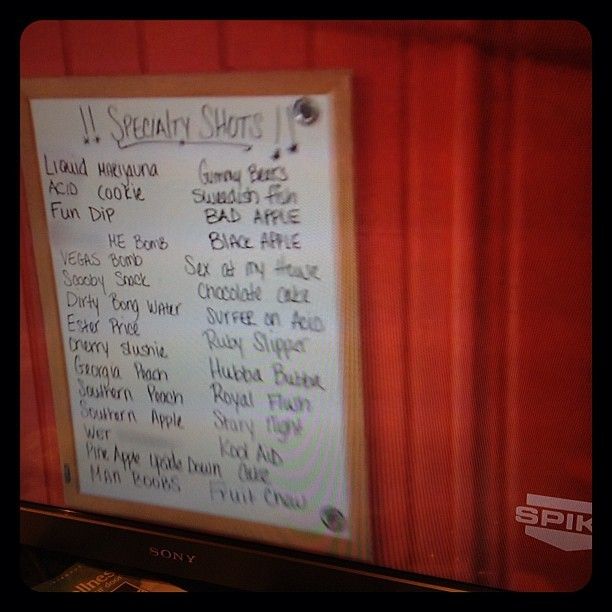 !! SPECIALTY SHOTS !!
LIQUID MARIJUNA
ACID COOKIE
FUN DIP
ME BOMB
VEGAS BOMB
Scooby Snack
Dirty Bong Water
Ester Price
Cherry slushie
Georgia Peach
Southern Peach
Southern Apple
WET
Pine Apple Upside Down Cake
MAN BOOBS
Gummy Bears
Swedish Fish
BAD APPLE
BLACK APPLE
Sex at my House
Chocolate cake
SURFER on ACID
Ruby Slipper
Hubba Bubba
Royal Flush
Stary Night
Kool AID
Fruit Chew
SPIK
SONY